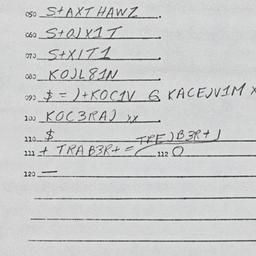 050 S+AXT HAWZ.
060 S+O)X1T.
070 S+XIT1.
080 KOJL81N.
090 $=)+KOC1V G KACEJV1M X
100 KOC3RAJ XX.
110 $ TRE)B3R+J
111 + TRAB3R+= 112 O
120 —